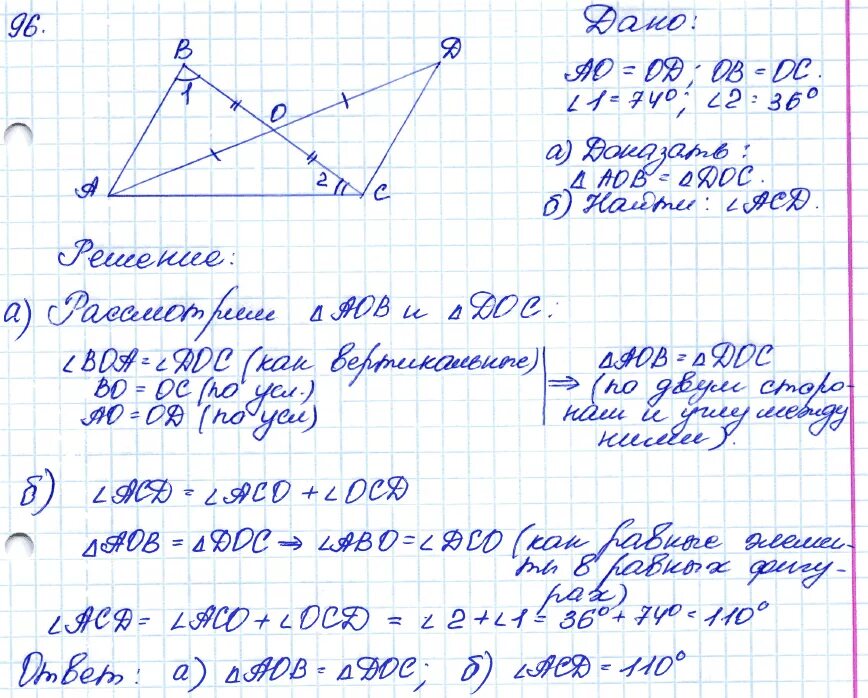 96.
B
D
1
O
A
2
C
Дано:
AO = OD; OB = OC.
∠1 = 74°; ∠2 = 36°
а) Доказать:
△ AOB = △DOC.
б) Найти: ∠ACD.
Решение:
а) Рассмотрим △AOB и △DOC:
∠BOA = ∠DOC (как вертикальные)
BO = OC (по усл.)
AO = OD (по усл)
⇒ △AOB = △DOC
(по двум сторо-
нам и углу между
ними).
б) ∠ACD = ∠ACO + ∠OCD
△AOB = △DOC ⇒ ∠ABO = ∠DCO (как равные элемен-
ты в равных фигу-
рах)
∠ACD = ∠ACO + ∠OCD = ∠2 + ∠1 = 36° + 74° = 110°
Ответ: а) △AOB = △DOC; б) ∠ACD = 110°